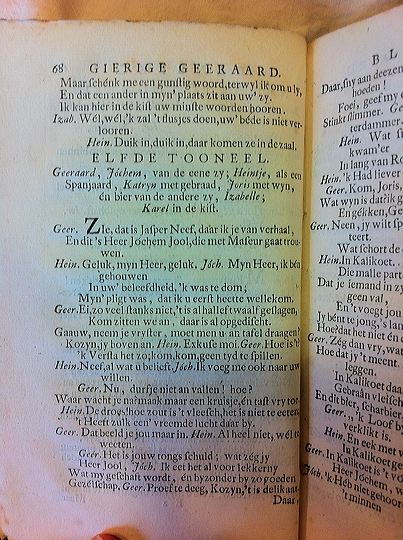 68 GIERIGE GEERAARD.
Maar schénk me een gunstig woord, terwyl ik om u ly,
En dat een ander in myn' plaats zit aan uw' zy.
Ik kan hier in de kist uw minste woorden hooren.
Izab. Wél, wél, 'k zal 't flusjes doen, uw' béde is niet ver-
looren.
Hein. Duik in, duik in, daar komen ze in de zaal.
ELFDE TOONEEL.
Geeraard, Jóchem, van de eene zy; Heintje, als een
Spanjaard, Katryn met gebraad, Joris met wyn,
én bier van de andere zy, Izabelle;
Karel in de kist.
Geer. Zle, dat is Jasper Neef, daar ik je van verhaal,
En dit 's Heer Jóchem Jool, die met Maseur gaat trou-
wen.
Hein. Geluk, myn Heer, geluk. Jóch. Myn Heer, ik bén
gehouwen
In uw' beleefdheid. 'k was te dom;
Myn' pligt was, dat ik u eerst heette wellekom.
Geer. Ei, zo veel stanks niet, 't is al half eeft waalf geslagen,
Kom zitten we an, daar is al opgedischt.
Gaauw, neem je vryster, moet men u an tafel draagen?
Kozyn, jy boven an. Hein. Exkuse moi. Geer. Hoe is 't?
'k Versta het zo; kom, kom, geen tyd te spillen.
Hein. Neef, al wat u belieft. Jóch. Ik voeg me ook naar uw
willen.
Geer. Nu, durfje niet an vallen? hoe?
Waar wacht je na? maak maar een kruisje, én tast vry toe.
Hein. De droes! hoe zout is 't vleesch, het is niet te eeten,
't Heeft zulk een' vreemde lucht daar by.
Geer. Dat beeld je jou maar in. Hein. Al heel niet, wél te
weeten.
Geer. Het is jouw tongs schuld; wat zég jy
Heer Jool, Jóch. Ik eet het al voor lekkerny
Wat my geschaft wordt, én byzonder by zo goeden
Gezélschap. Geer. Proef te deeg, Kozyn, 't is delikaat.
Daar,
B L
Daar, sny aan deezen
hoeden!
Foei, geef my e
Stinkt slimmer. Geer
terdammer.
Hein. Wat s
kwam'er
In lang van Ro
Hein. 'k Had liever
Geer. Kom, Joris,
Wat wyn is dat? ik g
En gékken, Ge
Geer. Neen, jy wilt sp
teert.
Wat schort de
Hein. In Kalikoet.
Die malle part
Dat je iemand in zy
geen val,
En 't voegt jou
Jy bént te jong, 's lan
Hoe? dat hiet niet én
Geer. Zég dan vry, wat
Hoe dat jy 't meent
leggen.
In Kalikoet daa
Gebraân vleisch
En dit bier, scharbier
Geer. 'k Loof by
verklikt is.
Hein. En eek met v
In Kalikoet ge
Geer. In Kalikoet is 't vo
Heer Jóchem, w
Jóch. 'k Héb niet gehoor
't minnen